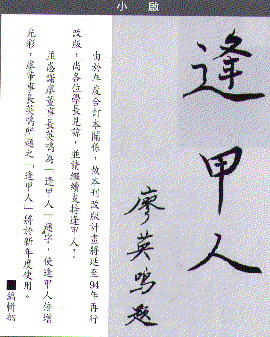 小啟
逢甲人
廖英鳴題
由於年度合訂本關係，故本刊改版計畫將延至94年再行
改版，尚各位學長見諒，並請繼續支持逢甲人！
並感謝廖董事長英鳴為「逢甲人」題字，使逢甲人倍增
光彩，廖董事長英鳴所題之「逢甲人」將於新年度使用。
■編輯部